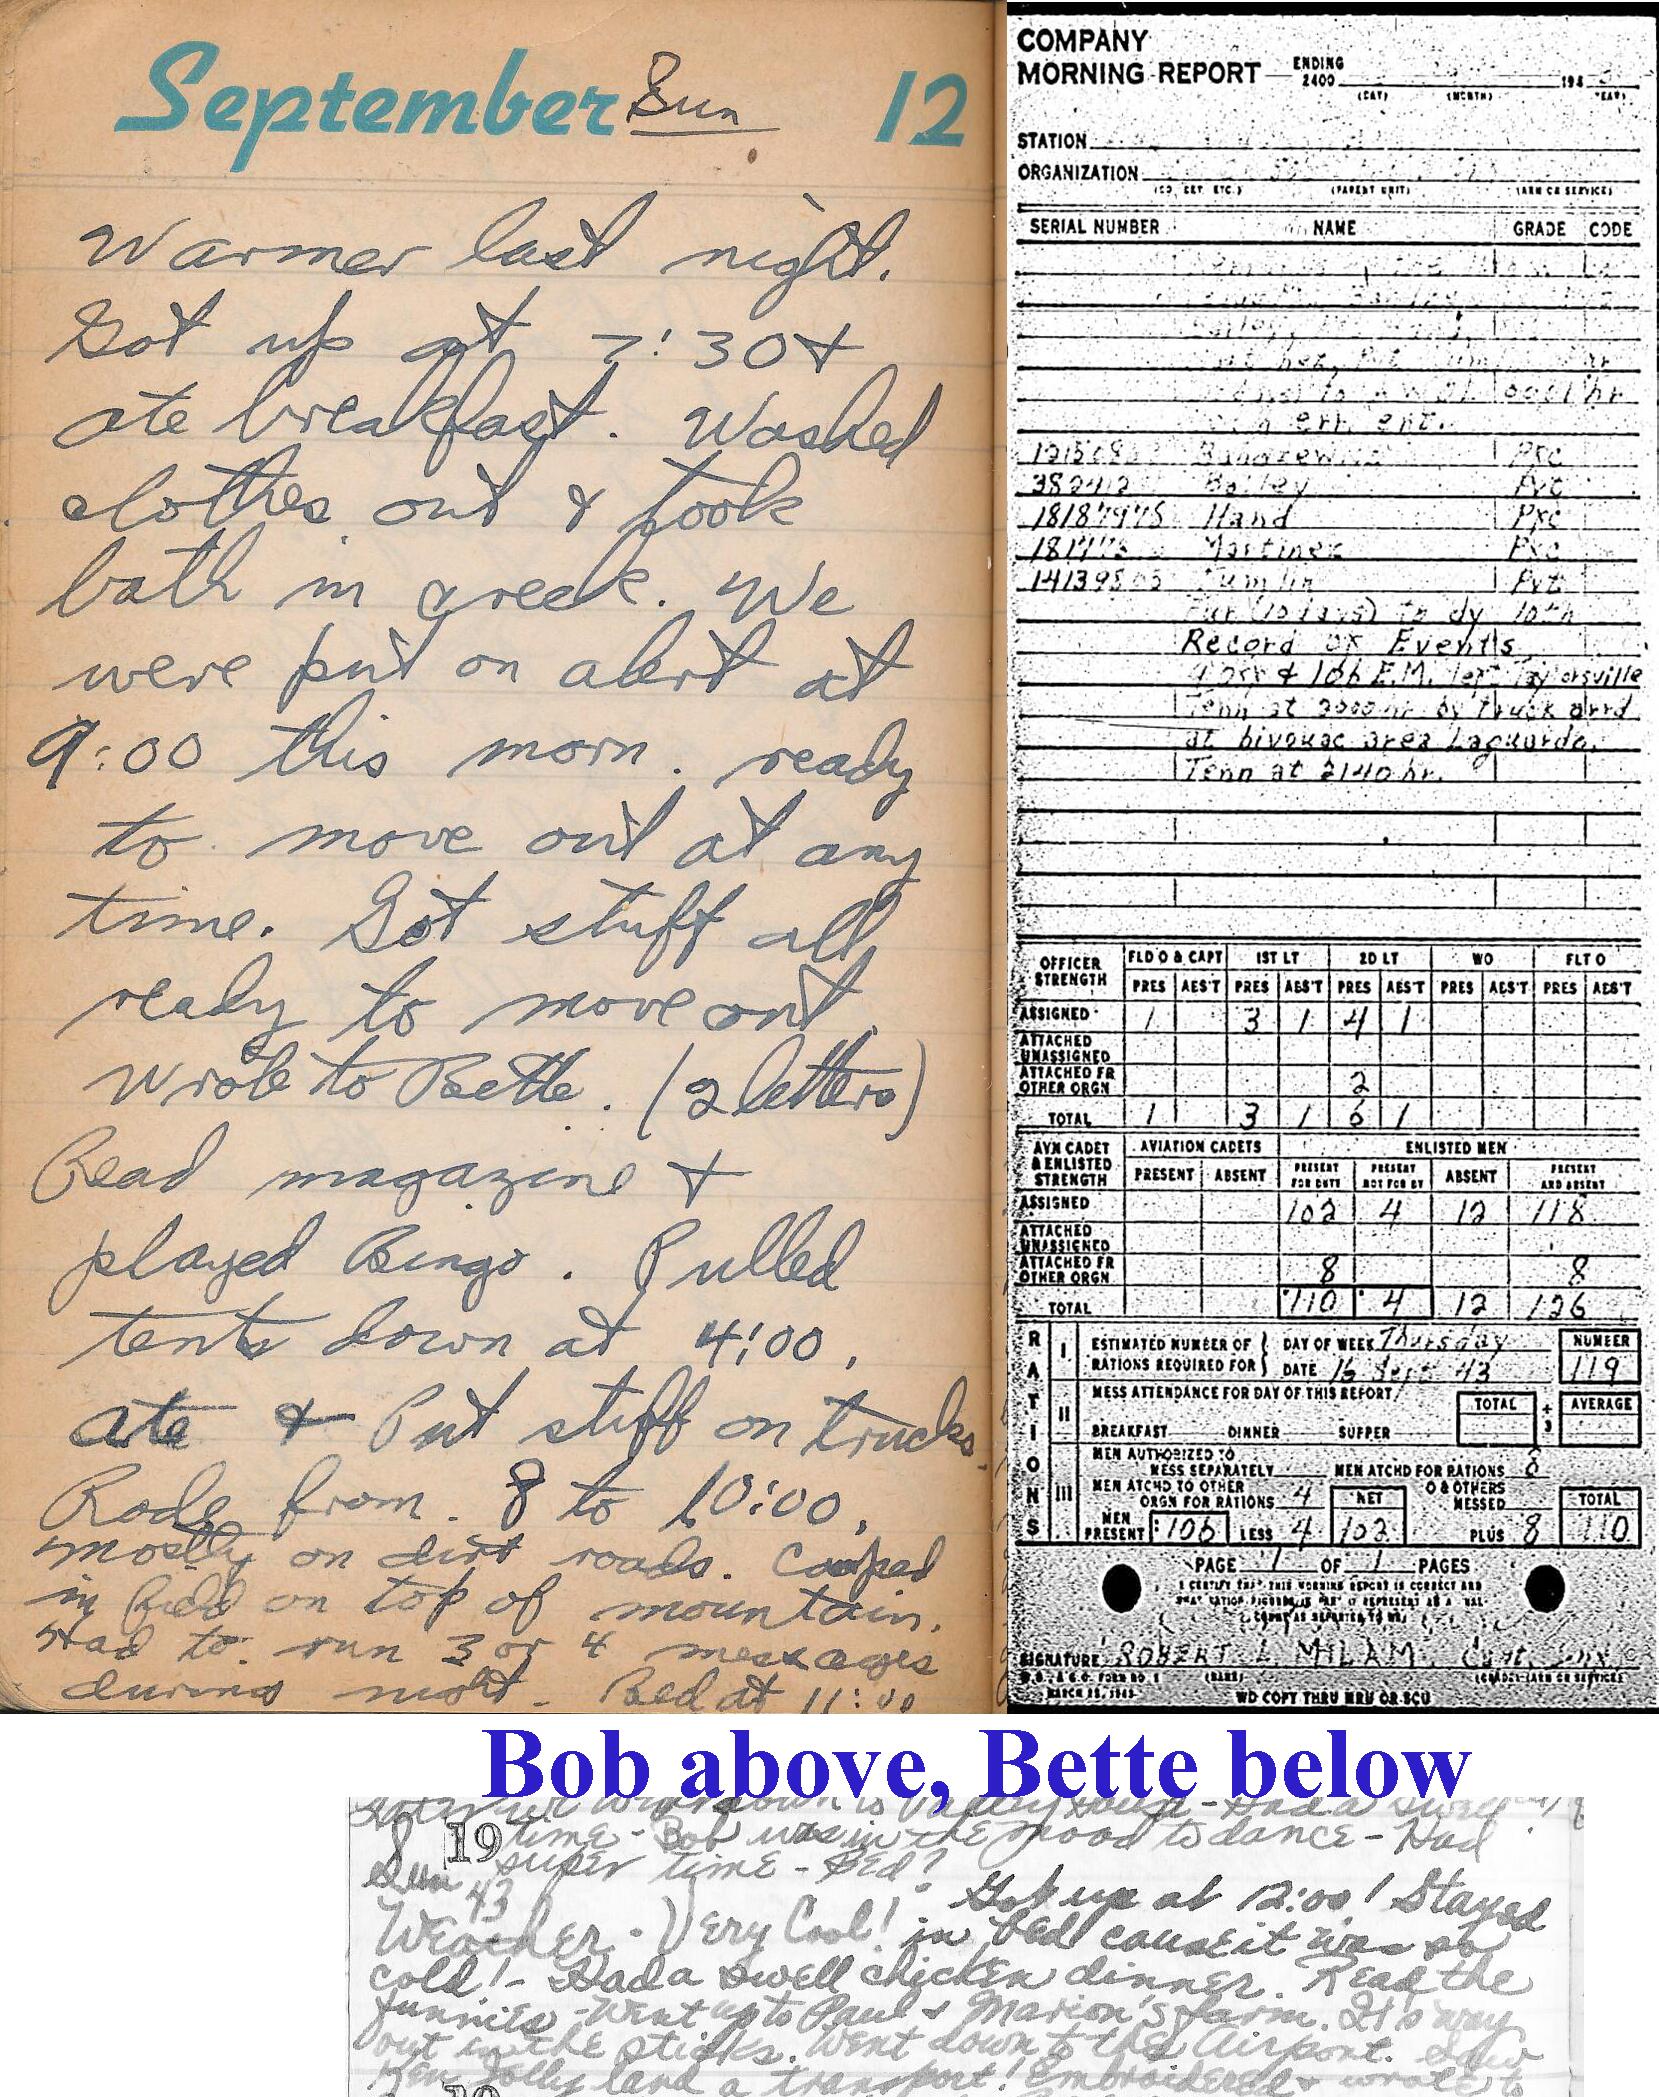 September Sun 12
Warmer last night.
Got up at 7:30 &
ate breakfast. Washed
clothes out & took
bath in creek. We
were put on alert at
9:00 this morn. ready
to move out at any
time. Got stuff all
ready to move out.
Wrote to Bette. (2 letters)
Read magazine &
played Bingo. Pulled
tents down at 4:00.
Ate & Put stuff on trucks.
Rode from 8 to 10:00.
mostly on dirt roads. Camped
in field on top of mountain.
Had to run 3 or 4 messages
during night. Bed at 11:00
COMPANY
MORNING REPORT ENDING 2400 194
(DAY) (MONTH) (YEAR)
STATION
ORGANIZATION
(CO, DET, ETC.) (PARENT UNIT) (ARM OR SERVICE)
SERIAL NUMBER NAME GRADE CODE
Pfc
Bailey Pvt
18187975 Hand Pfc
Martinez Pfc
Tumlin Pvt
Fur (10 days) to dy 10th
Record of Events
4 Off & 106 E.M. left Taylorsville
Tenn at 2000 hr by truck arrd
at bivouac area Laguardo,
Tenn at 2140 hr.
OFFICER STRENGTH FLD O & CAPT 1ST LT 2D LT WO FLT O
PRES ABS'T PRES ABS'T PRES ABS'T PRES ABS'T PRES ABS'T
ASSIGNED 1 3 1 4 1
ATTACHED UNASSIGNED
ATTACHED FR OTHER ORGN 2
TOTAL 1 3 1 6 1
AVN CADET & ENLISTED STRENGTH AVIATION CADETS ENLISTED MEN
PRESENT ABSENT PRESENT FOR DUTY PRESENT NOT FOR DY ABSENT PRESENT AND ABSENT
ASSIGNED 102 4 12 118
ATTACHED UNASSIGNED
ATTACHED FR OTHER ORGN 8 8
TOTAL 110 4 12 126
RATIONS
I ESTIMATED NUMBER OF RATIONS REQUIRED FOR DAY OF WEEK Thursday NUMBER
DATE 16 Sept 43 119
II MESS ATTENDANCE FOR DAY OF THIS REPORT TOTAL ÷ 3 AVERAGE
BREAKFAST DINNER SUPPER
III MEN AUTHORIZED TO MESS SEPARATELY MEN ATCHD FOR RATIONS 8
MEN ATCHD TO OTHER ORGN FOR RATIONS 4 NET O & OTHERS MESSED TOTAL
MEN PRESENT 106 LESS 4 102 PLUS 8 110
PAGE 1 OF 1 PAGES
I CERTIFY THAT THIS MORNING REPORT IS CORRECT AND
SIGNATURE ROBERT L MILAM
W.D. A.G.O. FORM NO. 1 (NAME) (GRADE) (ARM OR SERVICE)
MARCH 15, 1943 WD COPY THRU MRU OR SCU
Bob above, Bette below
time - Bob was in the mood to dance - Had
super time - Bed?
19
43
Sun
Got up at 12:00! Stayed
Weather - Very Cool! in bed cause it was so
cold! - Had a swell chicken dinner. Read the
funnies - Went up to Paul & Marion's farm. It's way
out in the sticks. Went down to the Airport. Saw
Ken Jolly land a transport! Embroidered & wrote to